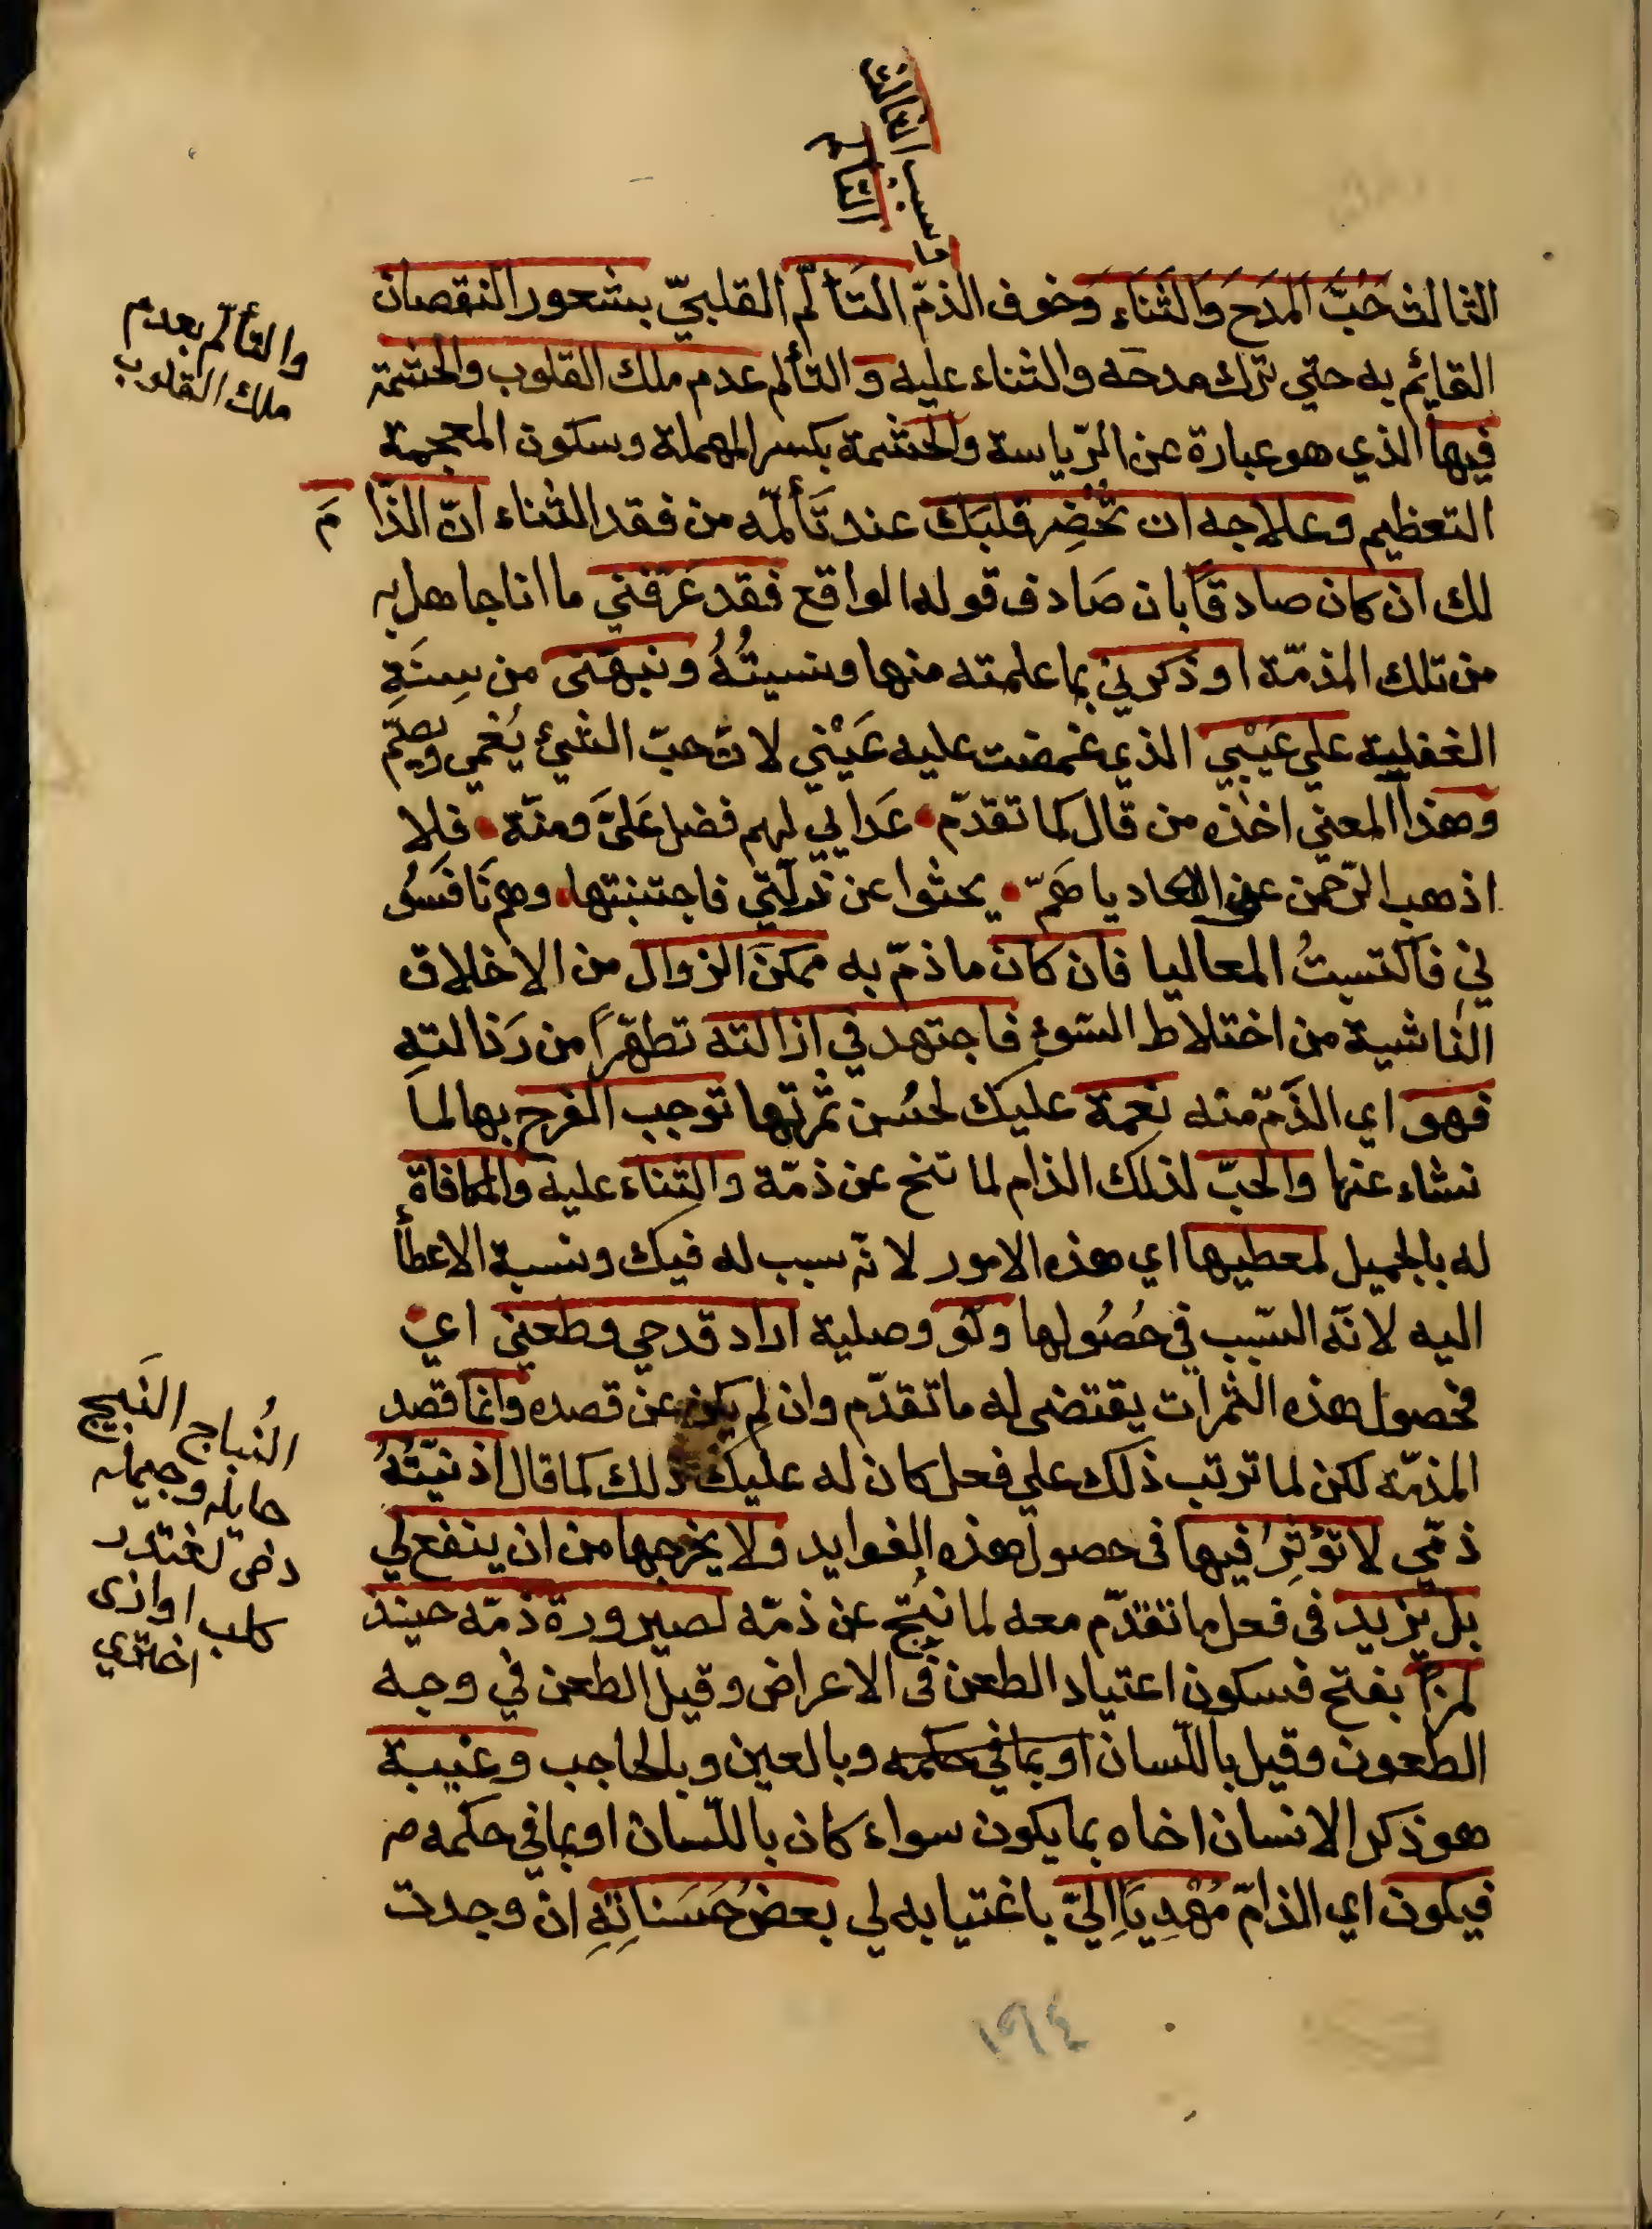 وسبب الثالث
التألم
الثالث حُبّ المَدح وَالثَنَاءِ وَخوف الذمّ التَألّم القلبيّ بشعور النقصان
القايم به حتي ترك مدحه والثناء عليه و التألم عدم ملك القلوب والحشمة
فيها الذي هو عبارة عن الرّياسة والحشمة بكسر المهملة وسكون المعجمة
التعظيم وعلاجه ان تحْضِر قلبَك عند تَألمّه من فقد الثناء انّ الذّامَ
لك ان كان صادقًا بان صَادف قوله الواقع فقد عَرّفني ما انا جاهل به
من تلك المذمّة او ذكرني بما علمته منها ونسيتُهُ ونبهَني من سِنَةِ
الغفلية علي عَيْبي الذي غمضت عليه عَيْني لا تحبّ الشيئ يُعْمي ويصمّ
وهذا المعني اخذه من قال كما تقدّم • عَدا لي لهم فضل عَلَيَّ ومنّة • فلا
اذهب الرّحمن عني الاعاديا هَمّ • بحثوا عن زلّتي فاجتنبتها • وهم نَافسُو
ني فَاكتسبتُ المعاليا فان كان ما ذمّ به ممكن الزوال من الاخلاق
الناشية من اختلاط السّوءِ فاجتهد في ازالته تطهّراً من رَذالتهِ
فهو اي الذّمّ منه نعمة عليك لحُسْن ثمرتها توجب الفرح بها لما
نشاء عنها والحبّ لذلك الذام لما تنج عن ذمّة والثناء عليه والمكافاة
له بالجميل لمعطيها اي هذه الامور لانّه سبب له فيك ونسبة الاعطأ
اليه لانّه السّبب في حُصُولها ولَو وصلية اراد قدحي وطعني اي
فحصول هذه الثمرات يقتضي له ما تقدّم وان لم يكن عن قصده وانما قصد
المذمّه لكن لما ترتب ذلك علي فعل كان له عليك ذلك كما قال اذ نيّتُهُ
ذمّي لا تؤثِرُ فيها في حصول هذه الفوايد ولا يخرجها من ان ينفع لي
بل يزيد في فعل ما تقدّم معه لما نُتِج عن ذمّه لصيرورة ذمّه حينئذ
لمزًا بفتح فسكون اعتياد الطعن في الاعراض وقيل الطعن في وجه
الطعون وقيل باللّسان او بما في حكمه وبالعين وبالحاجب وغيبة
هو ذكر الانسان اخاه بما يكون سواء كان باللّسان او بما في حكمه م
فيكون اي الذامّ مُهْدِيًا اِليّ باغتيابه لي بعضُ حَسَناتِهِ ان وجدت
والتألّم بعدم
ملك القلوب
النُباح النَبيح
كلب
١٩٤